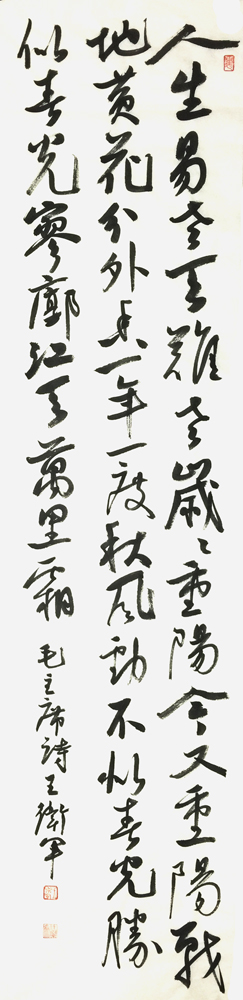 人生易老天難老歲〻重陽今又重陽戰
地黄花分外香一年一度秋风勁不似春光勝
似春光寥廓江天萬里霜
毛主席詩王衛軍